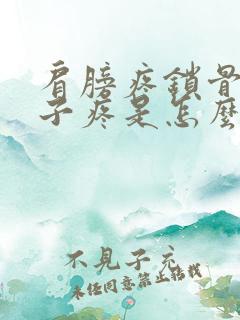 肩膀疼鎖骨
子疼是怎麼
不見子充
未经同意禁止转载